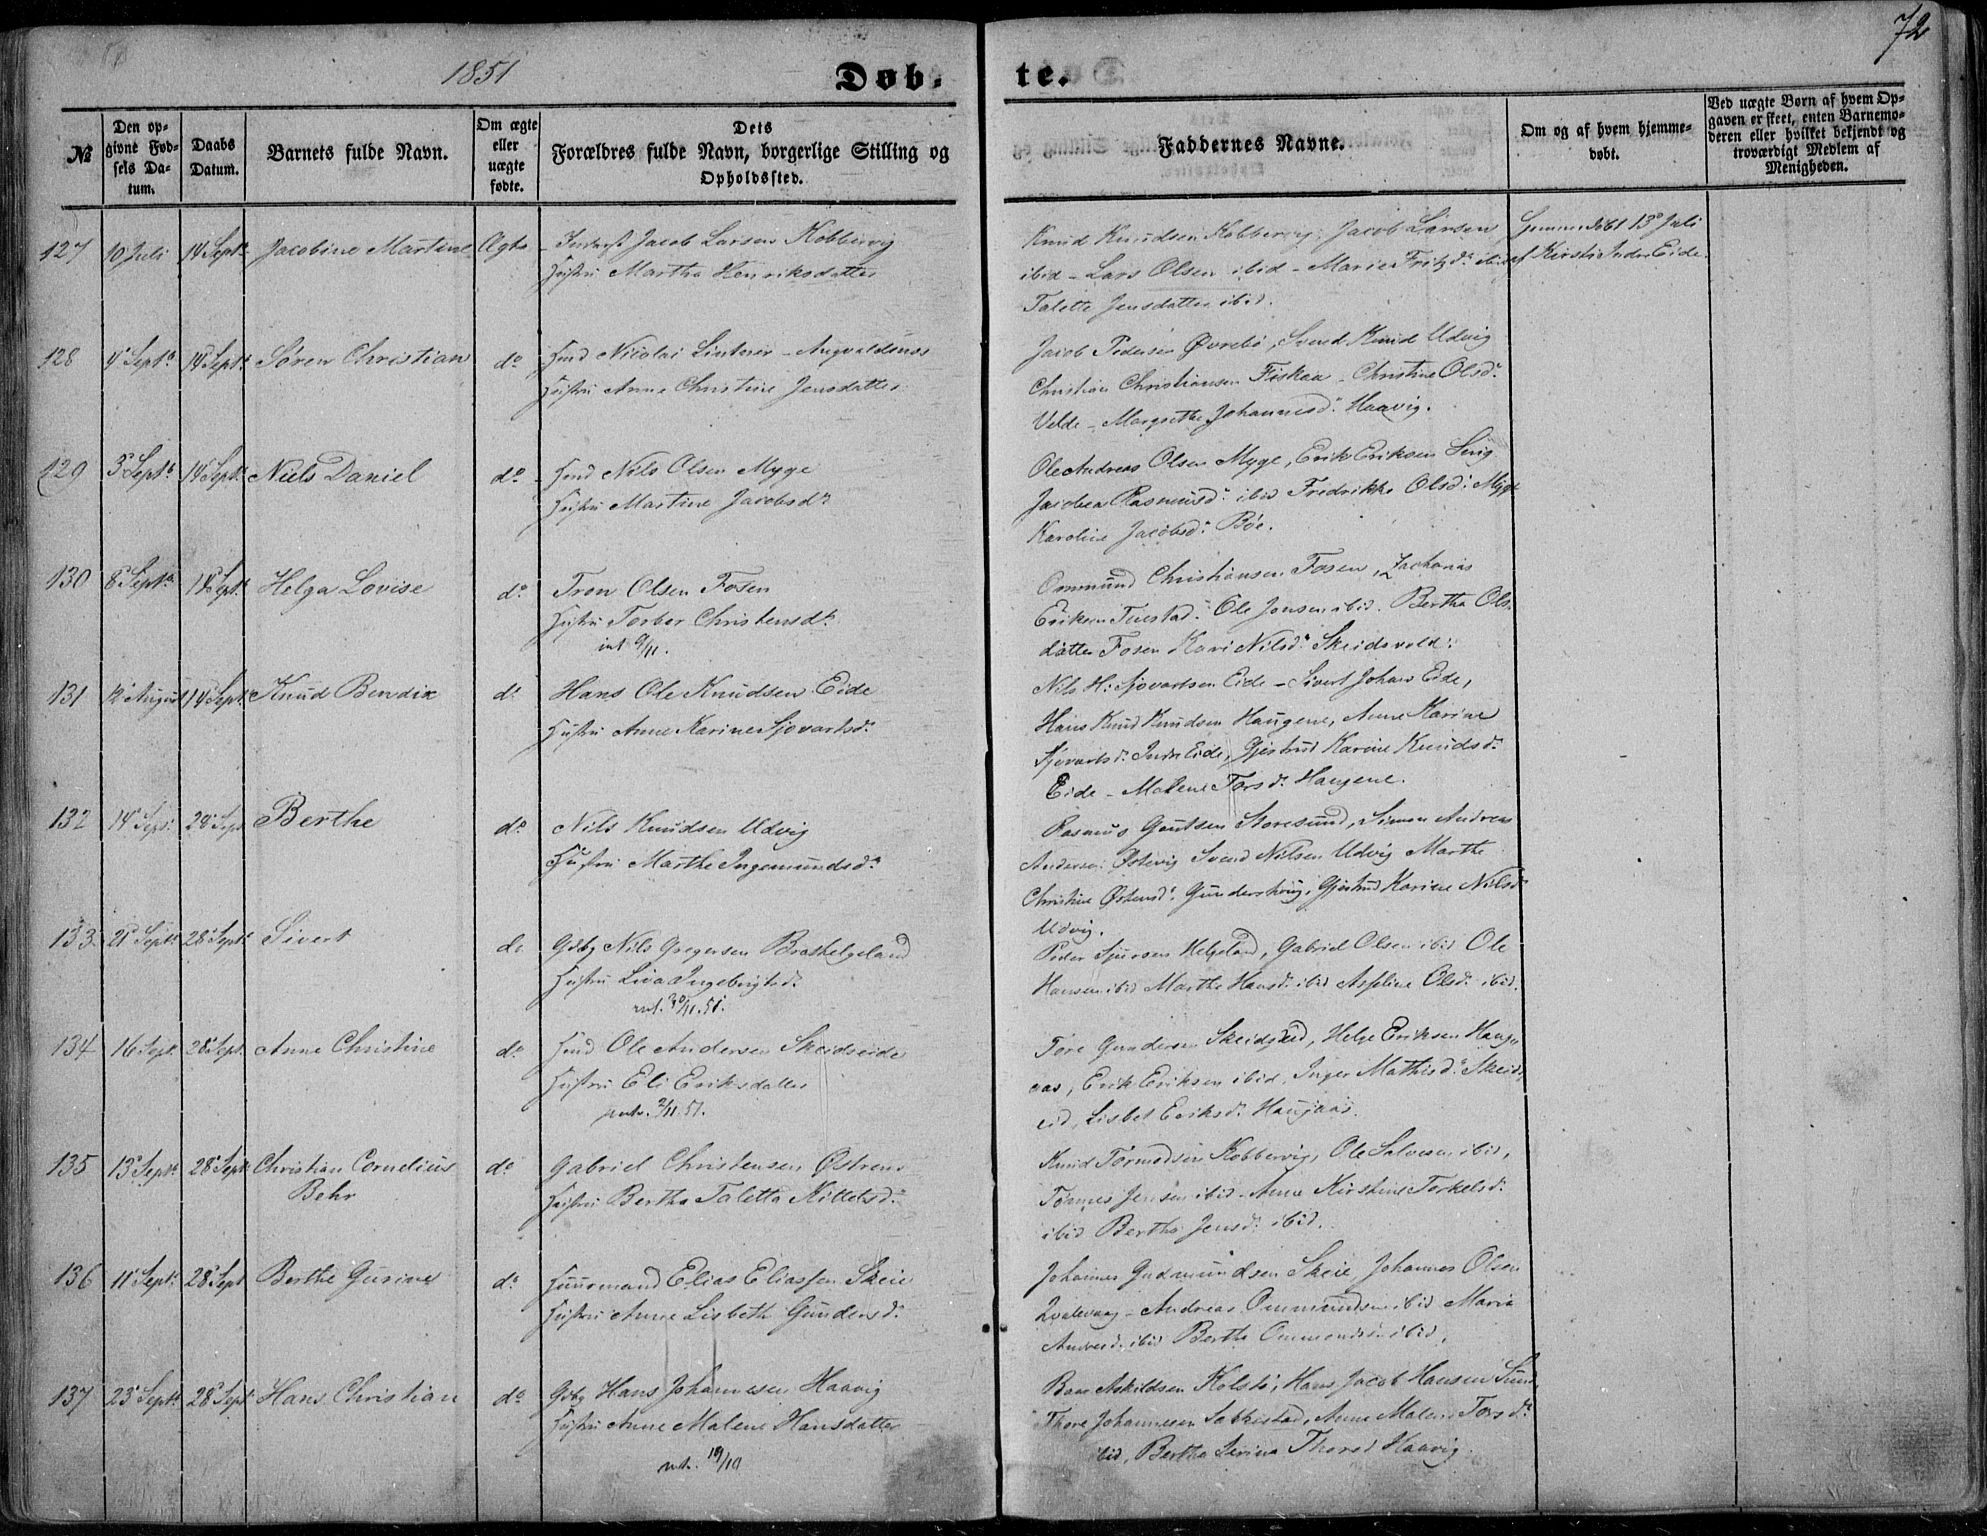 72
1851
Døb-
te.
№
Den op-
givne Fød-
sels Da-
tum.
Daabs
Datum.
Barnets fulde Navn.
Om ægte
eller
uægte
fødte.
Dets
Forældres fulde Navn, borgerlige Stilling og
Opholdssted.
Faddernes Navne.
Om og af hvem hjemme-
døbt.
Ved uægte Børn af hvem Op-
gaven er skeet, enten Barnemo-
deren eller hvilket bekjendt og
troværdigt Medlem af
Menigheden.
127 10 Juli 14 Septr Jacobine Martine Ægte Jacob Larsen Kobbervig
Hustru Martha Henriksdatter
Knud Knudsen Kobbervig, Jacob Larsen
ibid - Lars Olsen ibid - Marie Fritzd. ibid
Talette Jensdatter ibid.
Hjemmedøbt 13 Juli
af Kirsti Indre Eide.
128 4 Septr 14 Septr Søren Christian do Nicolai - Augvaldsnes
Hustru Anne Christine Jensdatter
Jacob Pedersen Øvrebø, Svend Knud Udvig
Christian Christiansen Fiskaa - Christine Olsd.
Velde - Margrethe Johannesd. Haavig.
129 3 Septr 14 Septr Niels Daniel do Nils Olsen Myge
Hustru Martine Jacobsdr
Ole Andreas Olsen Myge, Erik Eriksen
Jacobea Rasmusd. ibid Fredrikke Olsd. Myge
Karoline Jacobsd. Bøe.
130 8 Septr 14 Septr Helga Lovise do Tron Olsen Fosen
Hustru Torbor Christensdr
int 9/11.
Ommund Christiansen Fosen, Zacharias
Eriksen Ole Jonsen ibid. Bertha Ols-
datter Fosen Kari Nilsd.
131 12 August 14 Sept. Knud Bendix do Hans Ole Knudsen Eide
Hustru Anne Karine Sjovartsdr
Nils H. Sjovartsen Eide - Sivert Johan Eide,
Hans Knud Knudsen Haugene, Anne Karine
Sjovartsd. Indre Eide, Gjertrud Karine Knudsd.
Eide - Malene Torsd. Haugene.
132 14 Sept. 28 Sept Berthe do Nils Knudsen Udvig
Hustru Marthe Ingemundsdr
Rasmus Gautsen Storesund, Simon Andreas
Andersen Østevig Svend Nilsen Udvig Marthe
Christine Østensd. Gjertrud Karine Nilsd.
Udvig.
133 21 Septr 28 Septr Sivert do Gdbg Nils Gregersen Brathelgeland
Hustru Ingebrigtsd.
30/11.51.
Peder Sjursen Helgeland, Gabriel Olsen ibid Ole
Hansen ibid Marthe Hansd. ibid Asseline Olsd. ibid.
134 16 Sept. 28 Sept. Anne Christine do Ole Andersen Skeidseide
Hustru Eli Eriksdatter
2/11.51.
Tore Gundersen Helge Eriksen Haug-
aas, Erik Eriksen ibid, Inger Mathisd. Skeids-
eid, Lisbet Eriksd. Haugaas.
135 13 Septr 28 Sept Christian Cornelius do Gabriel Christensen Østrem
Behr
Hustru Bertha Taletta Kittelsd.
Knud Tormodsen Kobbervig, Ole Salvesen ibid,
Tønnes Jensen ibid - Anne Kirstine Torkelsd.
ibid Bertha Jensd. ibid.
136 11 Septr 28 Sept Berthe Gurine do Huusmand Elias Eliassen Skeie
Hustru Anne Lisbeth Gundersd.
Johannes Gudmundsen Skeie, Johannes Olsen
Andreas Ommundsen ibid Maria
ibid Berthe Ommundsd. ibid.
137 23 Septr 28 Sept Hans Christian do Gdbg Hans Johannesen Haavig
Hustru Anne Malene Hansdatter
19/10
Askildsen Kolstø, Hans Jacob Hansen Sund,
Thore Johannesen Anne Malene Torsd.
ibid, Bertha Serina Thorsd Haavig.